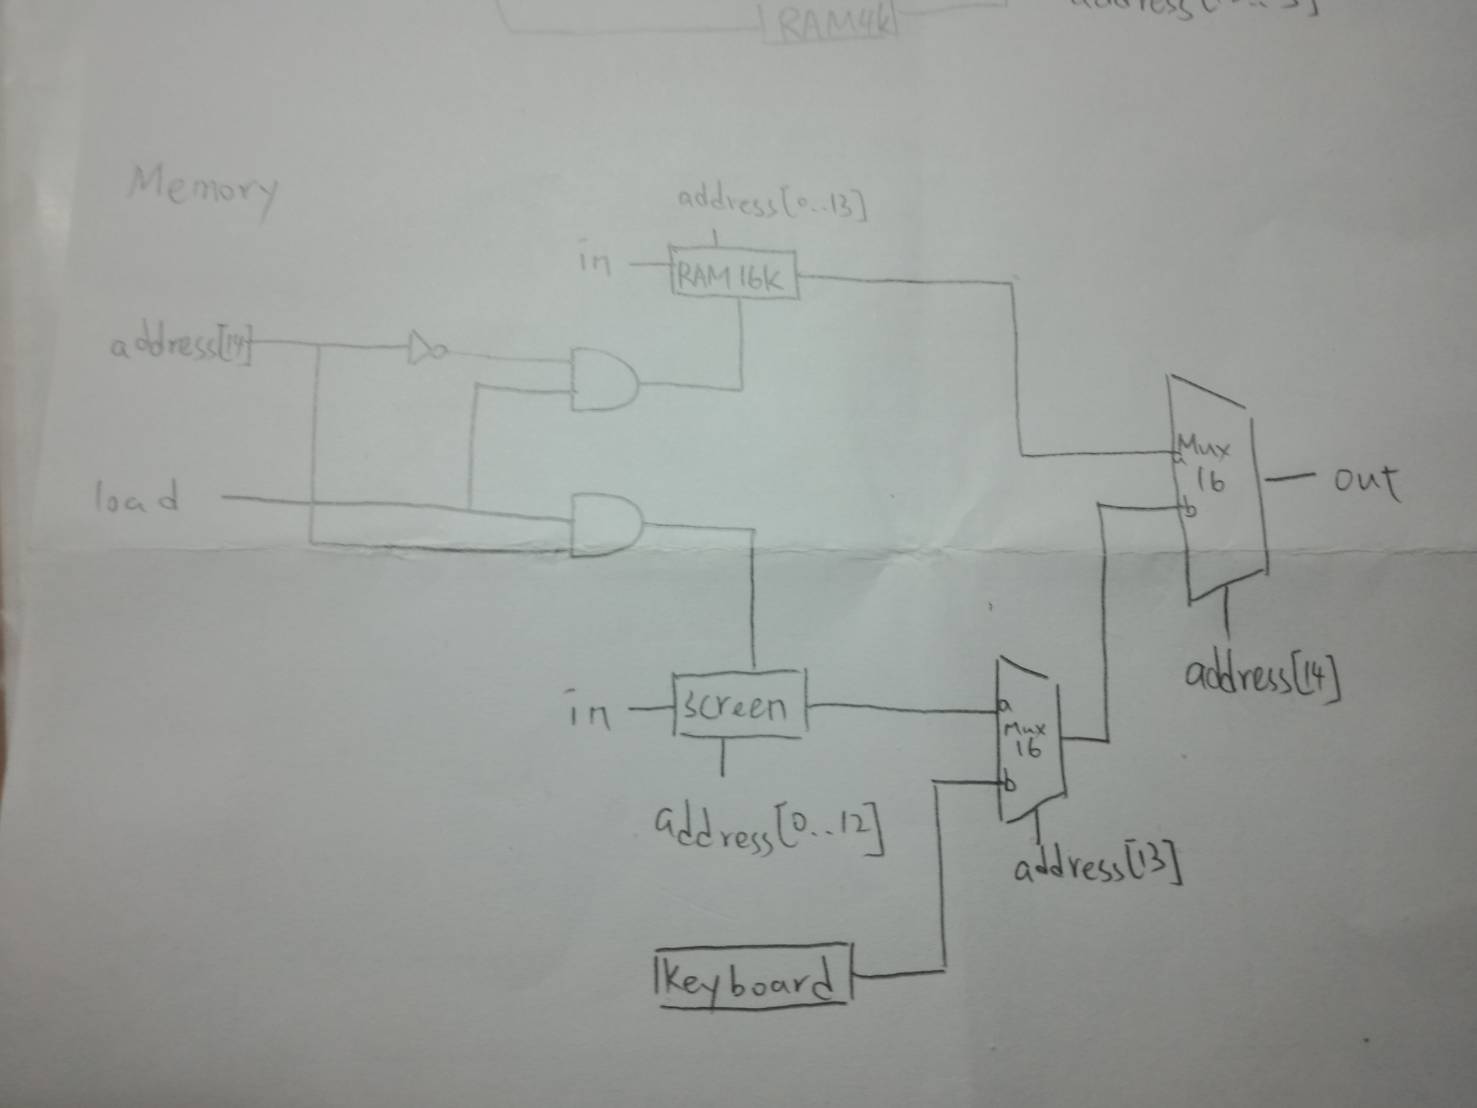 RAM4k
Memory
address[0..13]
in
RAM16k
address[14]
load
Mux
a
16
b
out
address[14]
in
screen
a
Mux
16
b
address[0..12]
address[13]
Keyboard